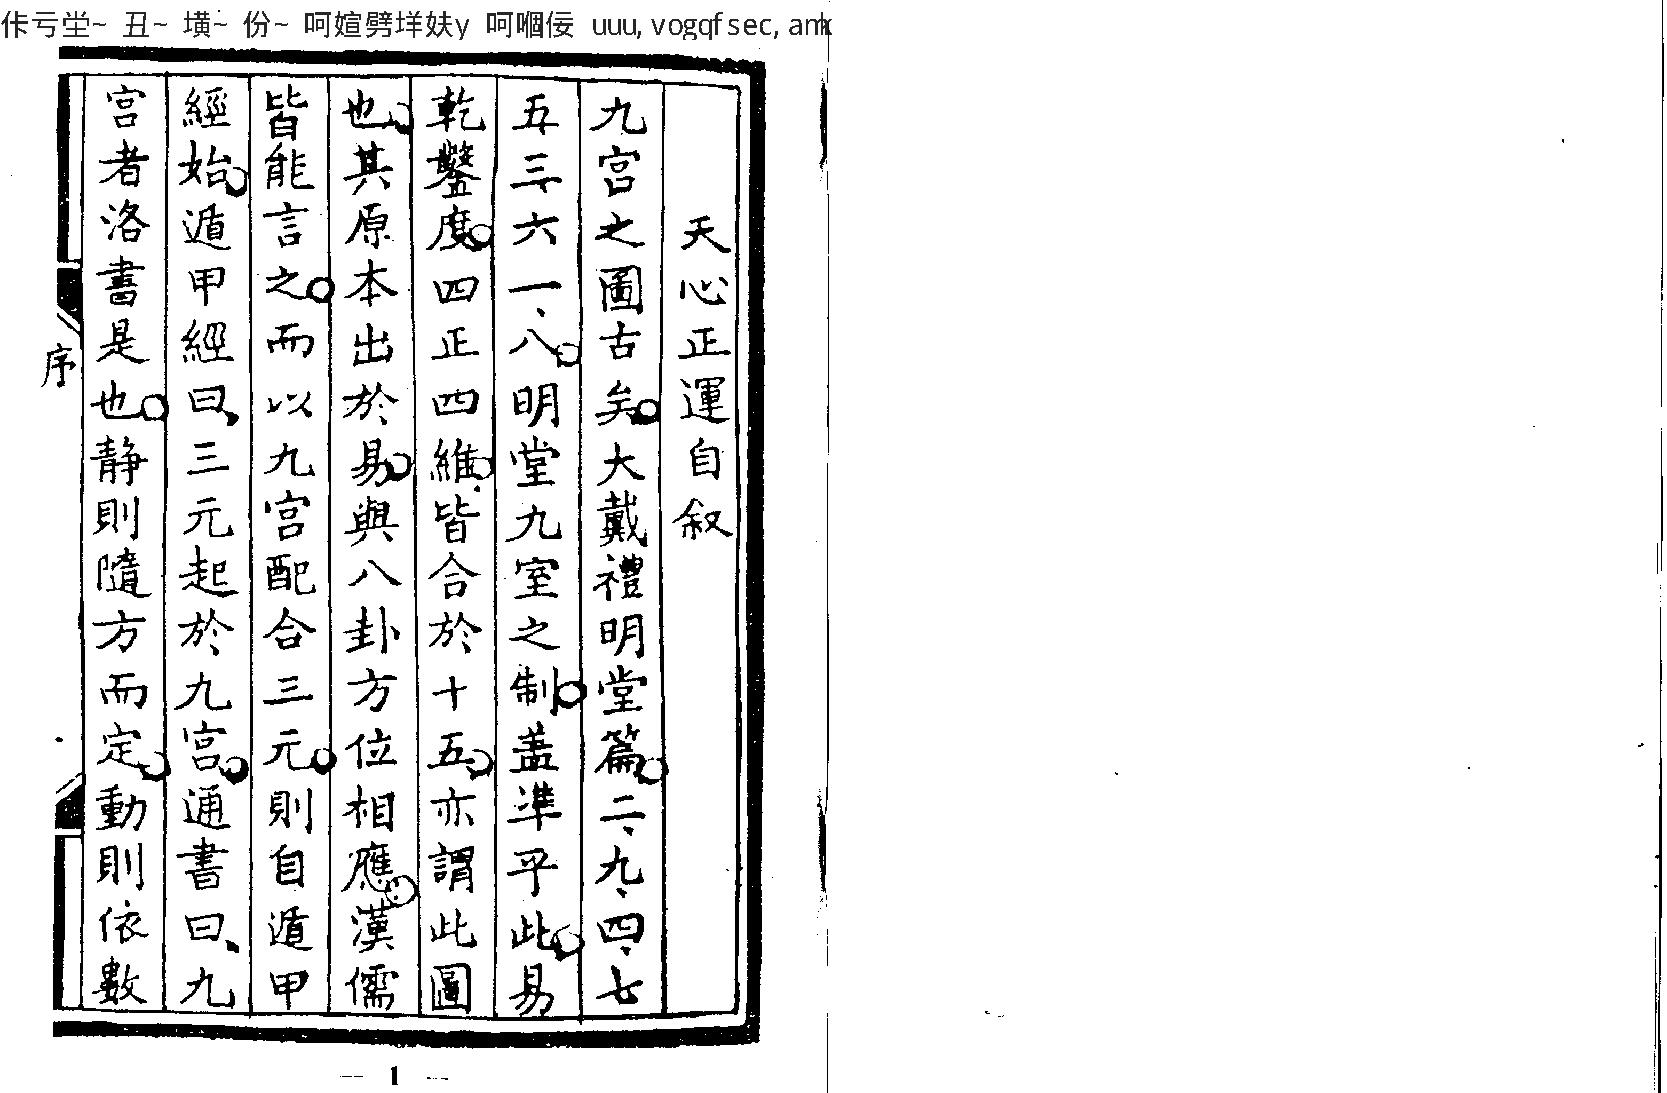 佧亏坣~ 丑~ 墴~ 份~ 呵媗劈垟妋y 呵嗰佞 uuu,vogqfsec,amk
天心正運自叙
九宮之圖古矣大戴禮明堂篇二、九、四、七
五、三、六一、八明堂九室之制蓋準乎此易
乾鑿度四正四維皆合於十五亦謂此圖
也其原本出於易與八卦方位相應漢儒
皆能言之而以九宮配合三元則自遁甲
經始遁甲經曰、三元起於九宮通書曰、九
宮者洛書是也靜則隨方而定動則依數
序
— 1 —